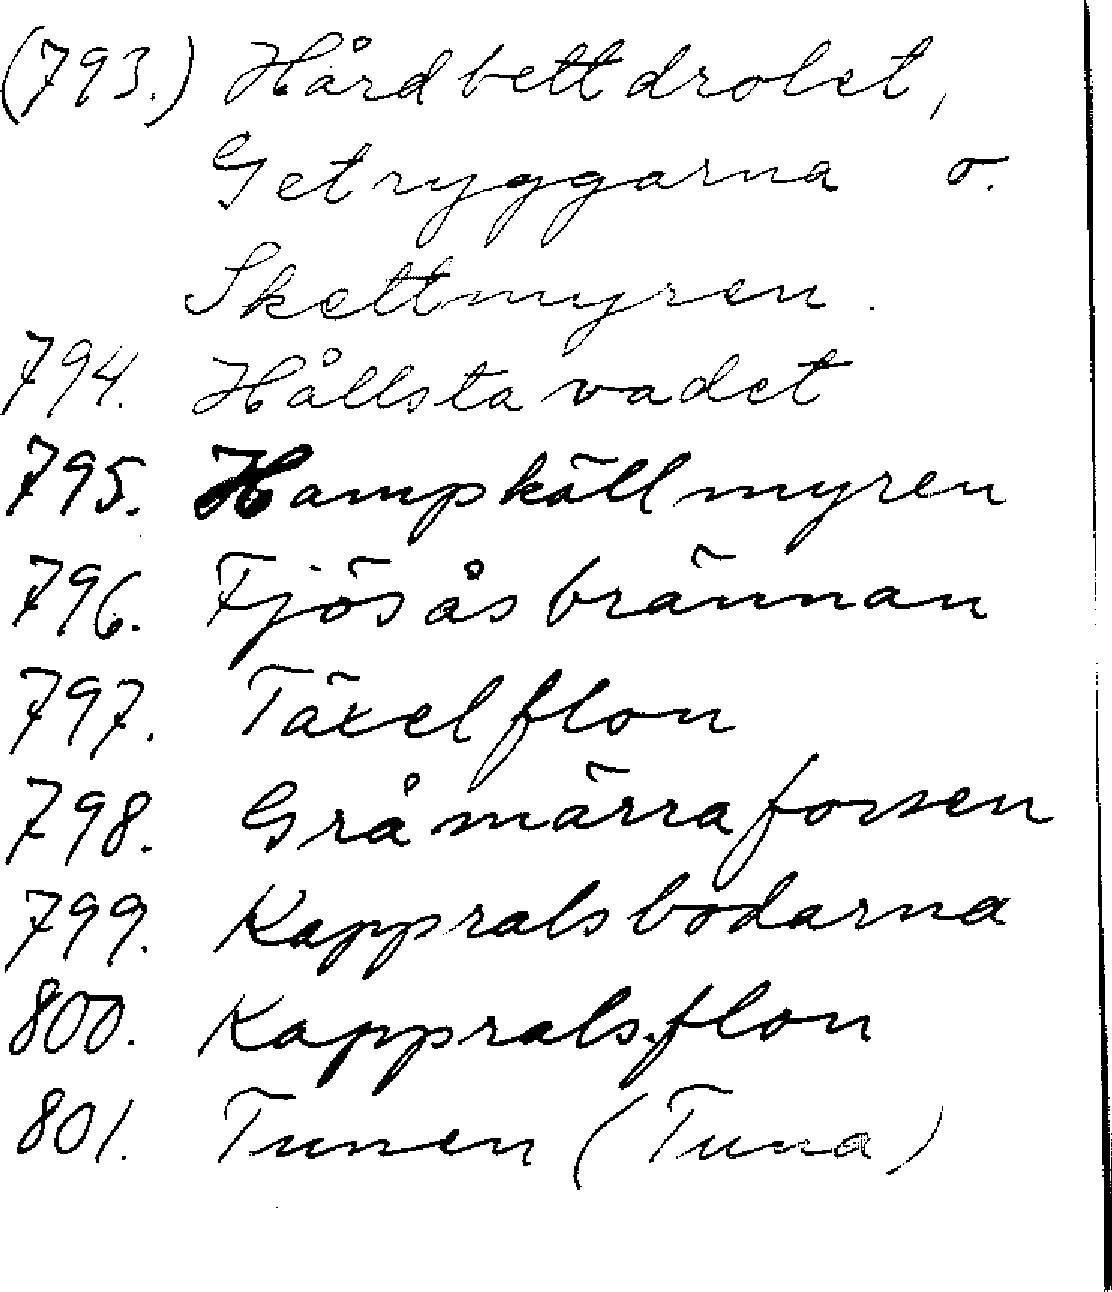 (793.) Hårdbettdrolet,
Getryggarna o.
Skettmyren.
794. Hållstavadet
795. Hampkällmyren
796. Fjösåsbrännan
797. Täxelflon
798. Gråmärraforsen
799. Kappralsbodarna
800. Kappralsflon
801. Tunen (Tuna)